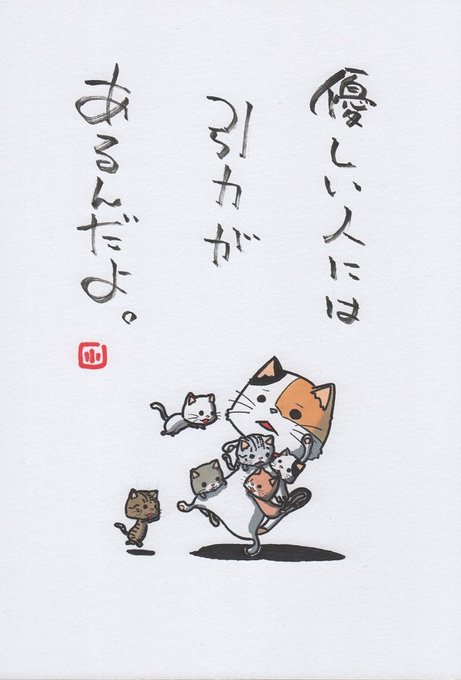 優しい人には
引力が
あるんだよ。